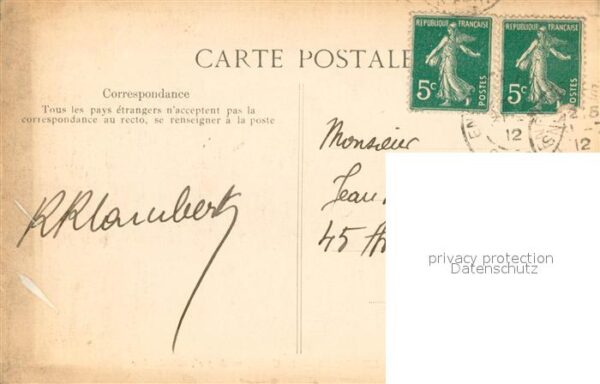 CARTE POSTALE
REPUBLIQUE FRANÇAISE
5c
POSTES
REPUBLIQUE FRANÇAISE
5c
POSTES
12
12
Correspondance
Tous les pays étrangers n'acceptent pas la
correspondance au recto, se renseigner à la poste
Monsieur
Jean
45
privacy protection
Datenschutz